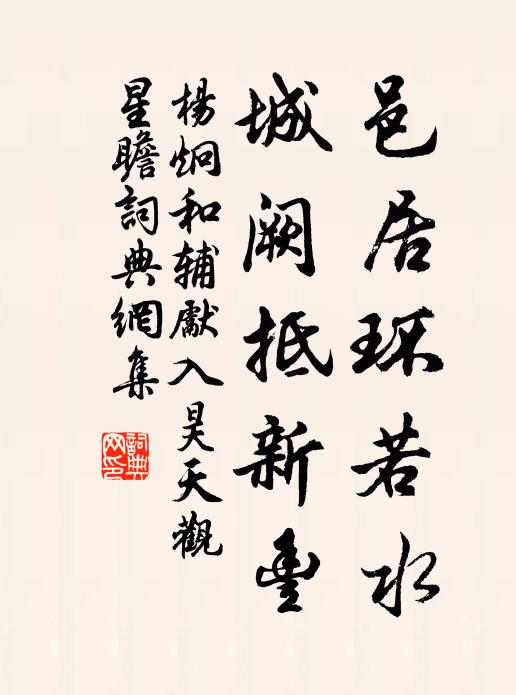 邑居环若水
城阙抵新豐
楊炯和輔獻入昊天觀
星瞻詞典網集
詞典网印